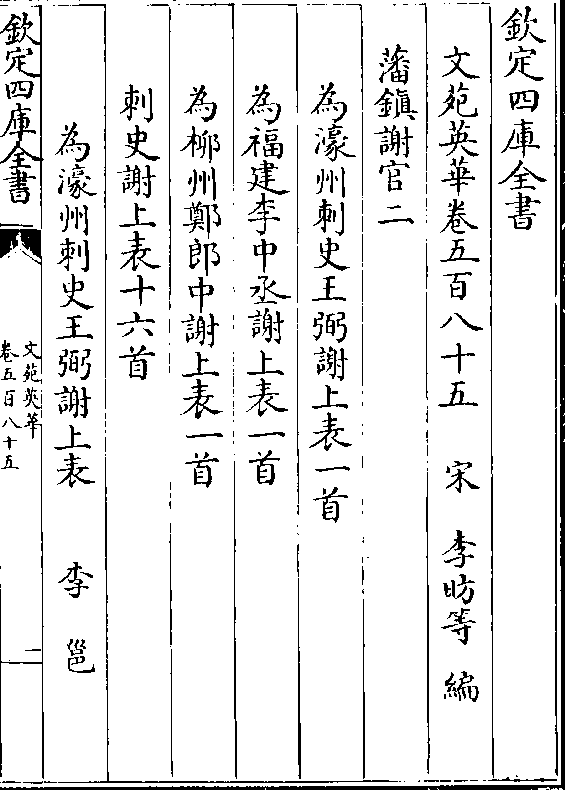 欽定四庫全書
文苑英華卷五百八十五　宋　李昉等　編
藩鎮謝官二
為濠州刺史王弼謝上表一首
為福建李中丞謝上表一首
為柳州鄭郎中謝上表一首
刺史謝上表十六首
為濠州刺史王弼謝上表　李邕
欽定四庫全書
文苑英華
卷五百八十五
一